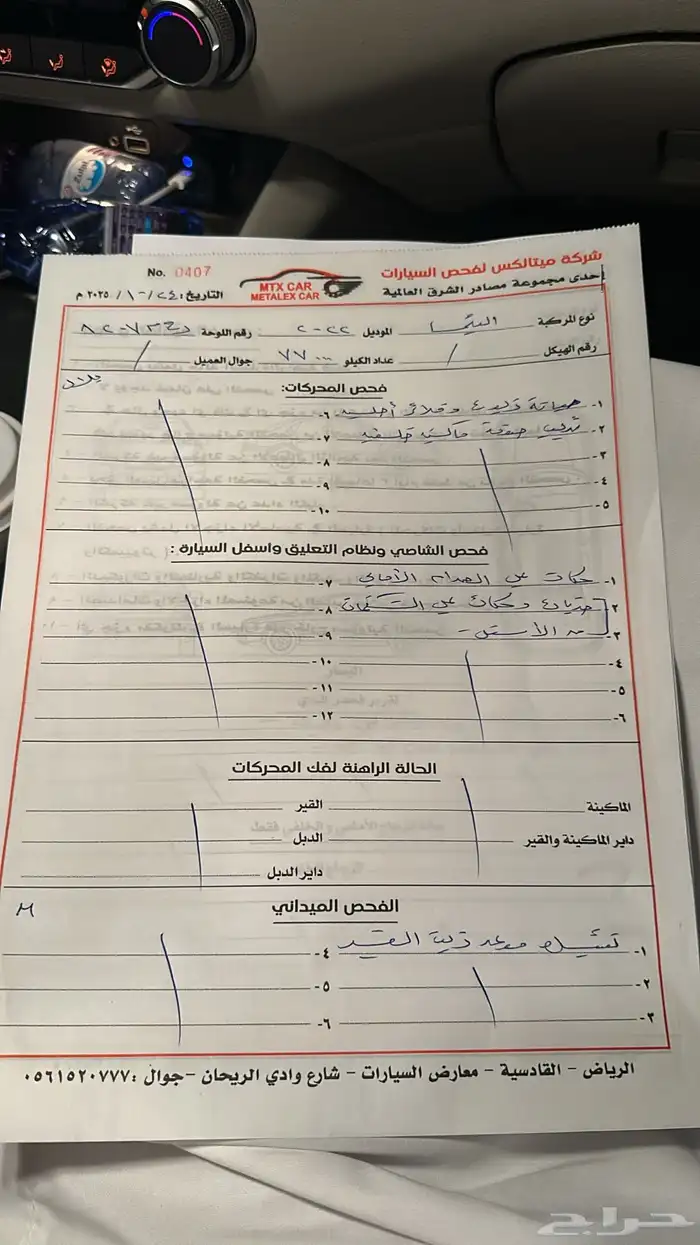 شركة ميتالكس لفحص السيارات
إحدى مجموعة مصادر الشرق العالمية
MTX CAR
METALEX CAR
No. 0407
التاريخ: ٢٤ / ١٠ / ٢٠٢٥ م
نوع المركبة التيما الموديل ٢٠٢٢ رقم اللوحة
رقم الهيكل / عدد الكيلو ٧٧٠٠٠ جوال العميل /
فحص المحركات:
١- صيانة زيوت وفلاتر أصلية
٢- تهريب صوفة ماكينة خلفية
٣-
٤-
٥-
٦-
٧-
٨-
٩-
١٠-
فحص الشاصي ونظام التعليق واسفل السيارة :
١- حكات في الصدام الأمامي
٢- وحكات في
٣- من الأسفل -
٤-
٥-
٦-
٧-
٨-
٩-
١٠-
١١-
١٢-
الحالة الراهنة لفك المحركات
الماكينة القير
داير الماكينة والقير الدبل
داير الدبل
الفحص الميداني
١- زيت القير
٢-
٣-
٤-
٥-
٦-
الرياض - القادسية - معارض السيارات - شارع وادي الريحان -جوال :٠٥٦١٥٢٠٧٧٧
حراج